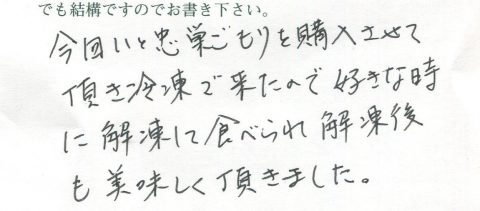 でも結構ですのでお書き下さい。
今回いと忠巣ごもりを購入させて
頂き冷凍で来たので好きな時
に解凍して食べられ解凍後
も美味しく頂きました。